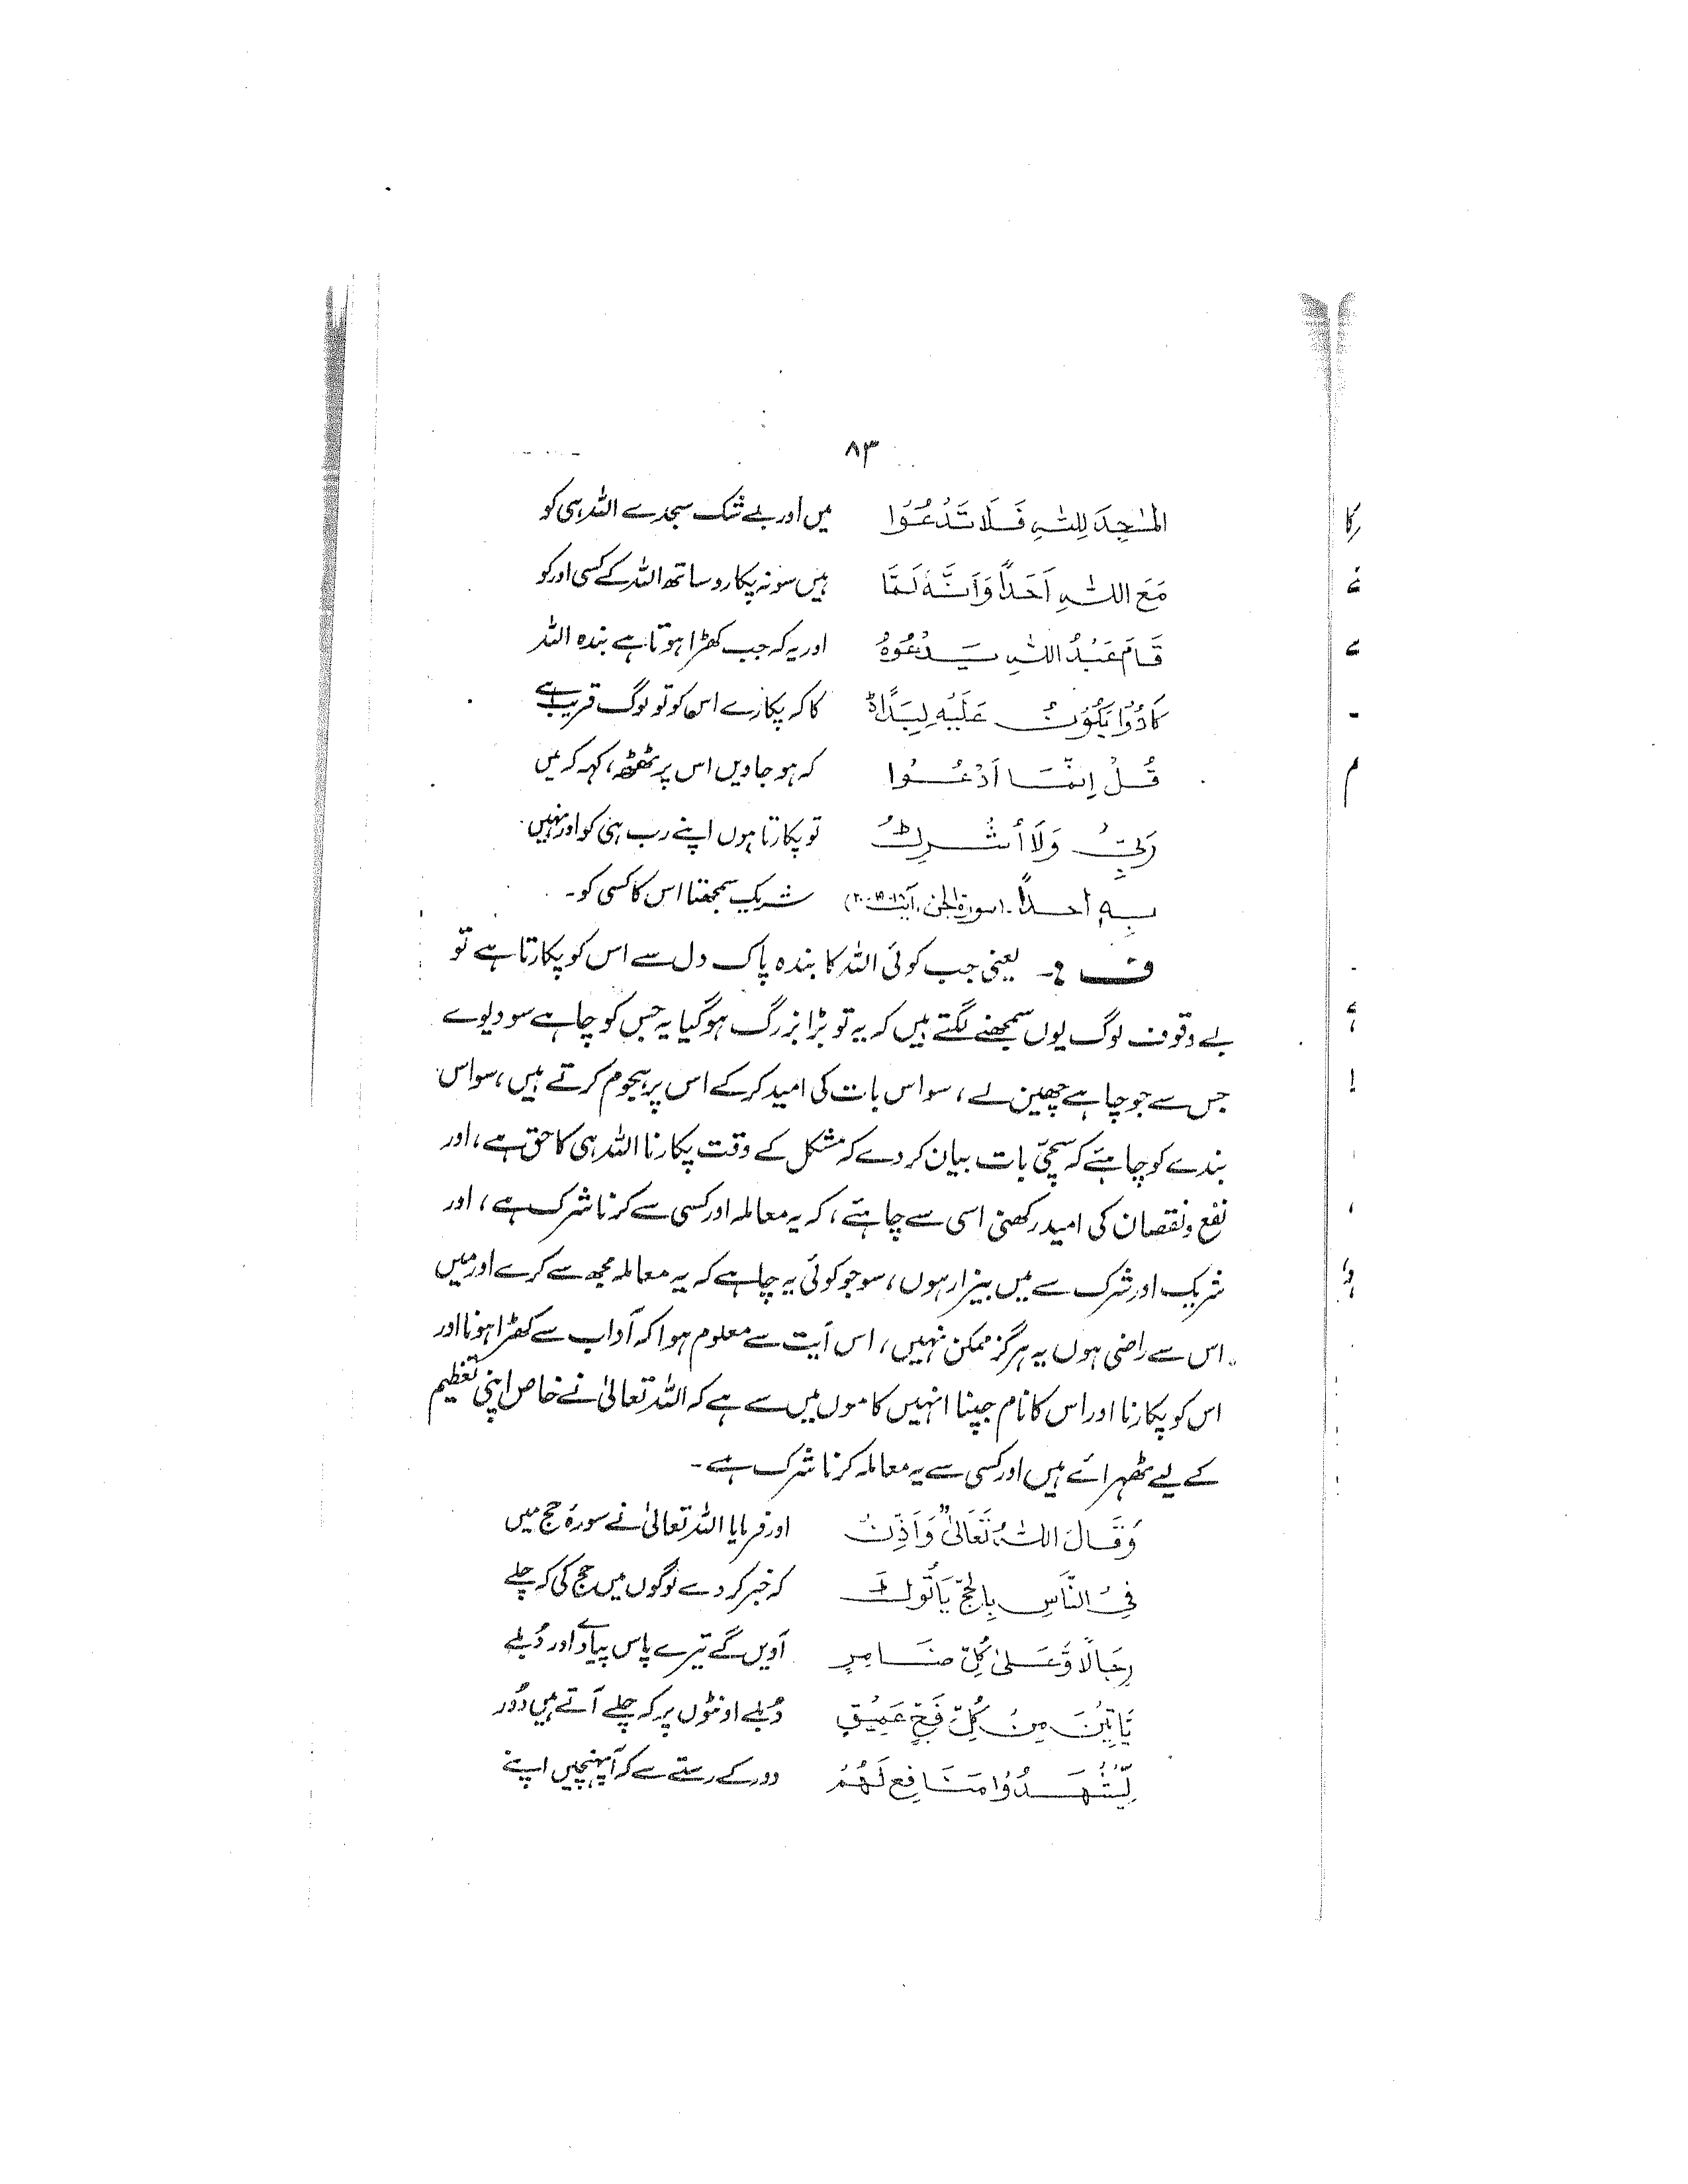 ۸۳
المسٰجِدَ لِلّٰہِ فَلَا تَدْعُوْا میں اور بے شک سجدے اللہ ہی کو
مَعَ اللّٰہِ اَحَداً وَاَنَّہٗ لَمَّا ہیں سو نہ پکارو ساتھ اللہ کے کسی اور کو
قَامَ عَبْدُ اللّٰہِ یَدْعُوْہُ اور یہ کہ جب کھڑا ہوتا ہے بندہ اللہ
کَادُوْا یَکُوْنُوْنَ عَلَیْہِ لِبَدًا کا کہ پکارے اس کو تو لوگ قریب ہے
قُلْ اِنَّمَا اَدْعُوْا کہ ہو جاویں اس پر ٹھٹھ، کہہ کہ میں
رَبِّیْ وَلَا اُشْرِکُ تو پکارتا ہوں اپنے رب ہی کو اور نہیں
بِہٖ احداً۔ (سورۃ الجن، آیت شریک سمجھتا اس کا کسی کو۔
ف:۔ یعنی جب کوئی اللہ کا بندہ پاک دل سے اس کو پکارتا ہے تو
بے وقوف لوگ یوں سمجھنے لگتے ہیں کہ یہ تو بڑا بزرگ ہو گیا یہ جس کو چاہے سو دیوے
جس سے جو چاہے چھین لے، سو اس بات کی امید کر کے اس پر ہجوم کرتے ہیں، سو اس
بندے کو چاہئے کہ سچّی بات بیان کر دے کہ مشکل کے وقت پکارنا اللہ ہی کا حق ہے، اور
نفع و نقصان کی امید رکھنی اسی سے چاہئے، کہ یہ معاملہ اور کسی سے کرنا شرک ہے، اور
شریک اور شرک سے میں بیزار ہوں، سو جو کوئی یہ چاہے کہ یہ معاملہ مجھ سے کرے اور میں
اس سے راضی ہوں یہ ہرگز ممکن نہیں، اس آیت سے معلوم ہوا کہ آداب سے کھڑا ہونا اور
اس کو پکارنا اور اس کا نام جپنا انہیں کاموں میں سے ہے کہ اللہ تعالیٰ نے خاص اپنی تعظیم
کے لیے ٹھہرائے ہیں اور کسی سے یہ معاملہ کرنا شرک ہے۔
وَقَالَ اللّٰہُ تَعَالیٰ "وَاَذِّنْ اور فرمایا اللہ تعالیٰ نے سورۂ حج میں
فِیْ النَّاسِ بِالْحَجِّ یَاْتُوْکَ کہ خبر کر دے لوگوں میں حج کی کہ چلے
رِجَالًا وَّعَلیٰ کُلِّ ضَامِرٍ آویں گے تیرے پاس پیادے اور دُبلے
یَّاْتِیْنَ مِنْ کُلِّ فَجٍّ عَمِیْقٍ دُبلے اونٹوں پر کہ چلے آتے ہیں دُور
لِّیَشْہَدُوْا مَنَافِعَ لَہُمْ دور کے رستے سے کہ آپہنچیں اپنے